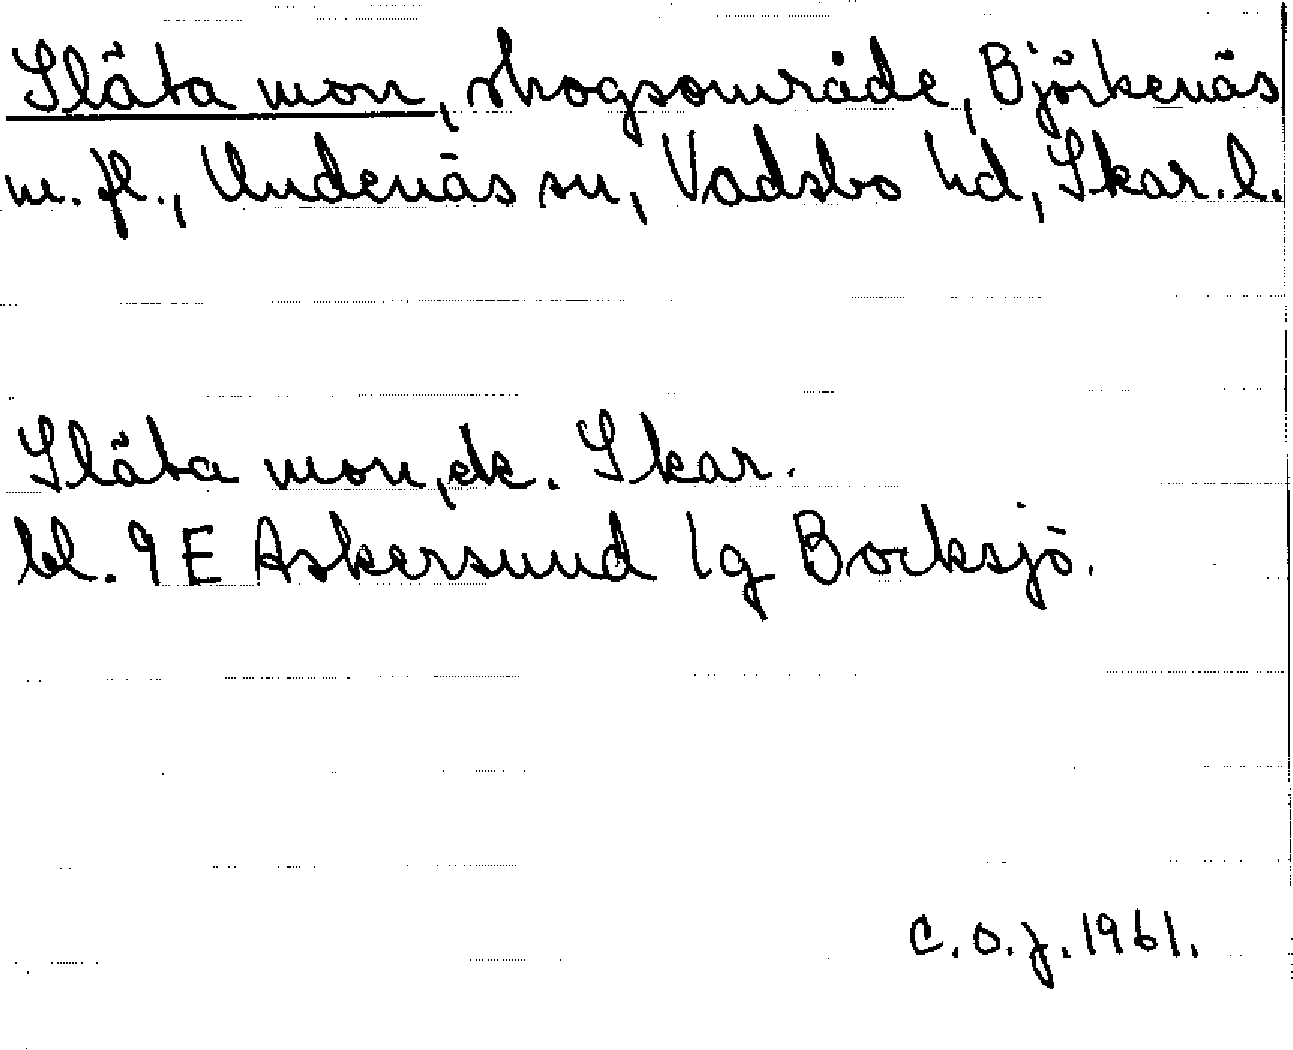 Släta mon, skogsområde, Björkenäs
m. fl., Undenäs sn, Vadsbo hd, Skar. l.
Släta mon, ek. Skar.
bl. 9 E Askersund 1g Bocksjö.
C.O.J. 1961.